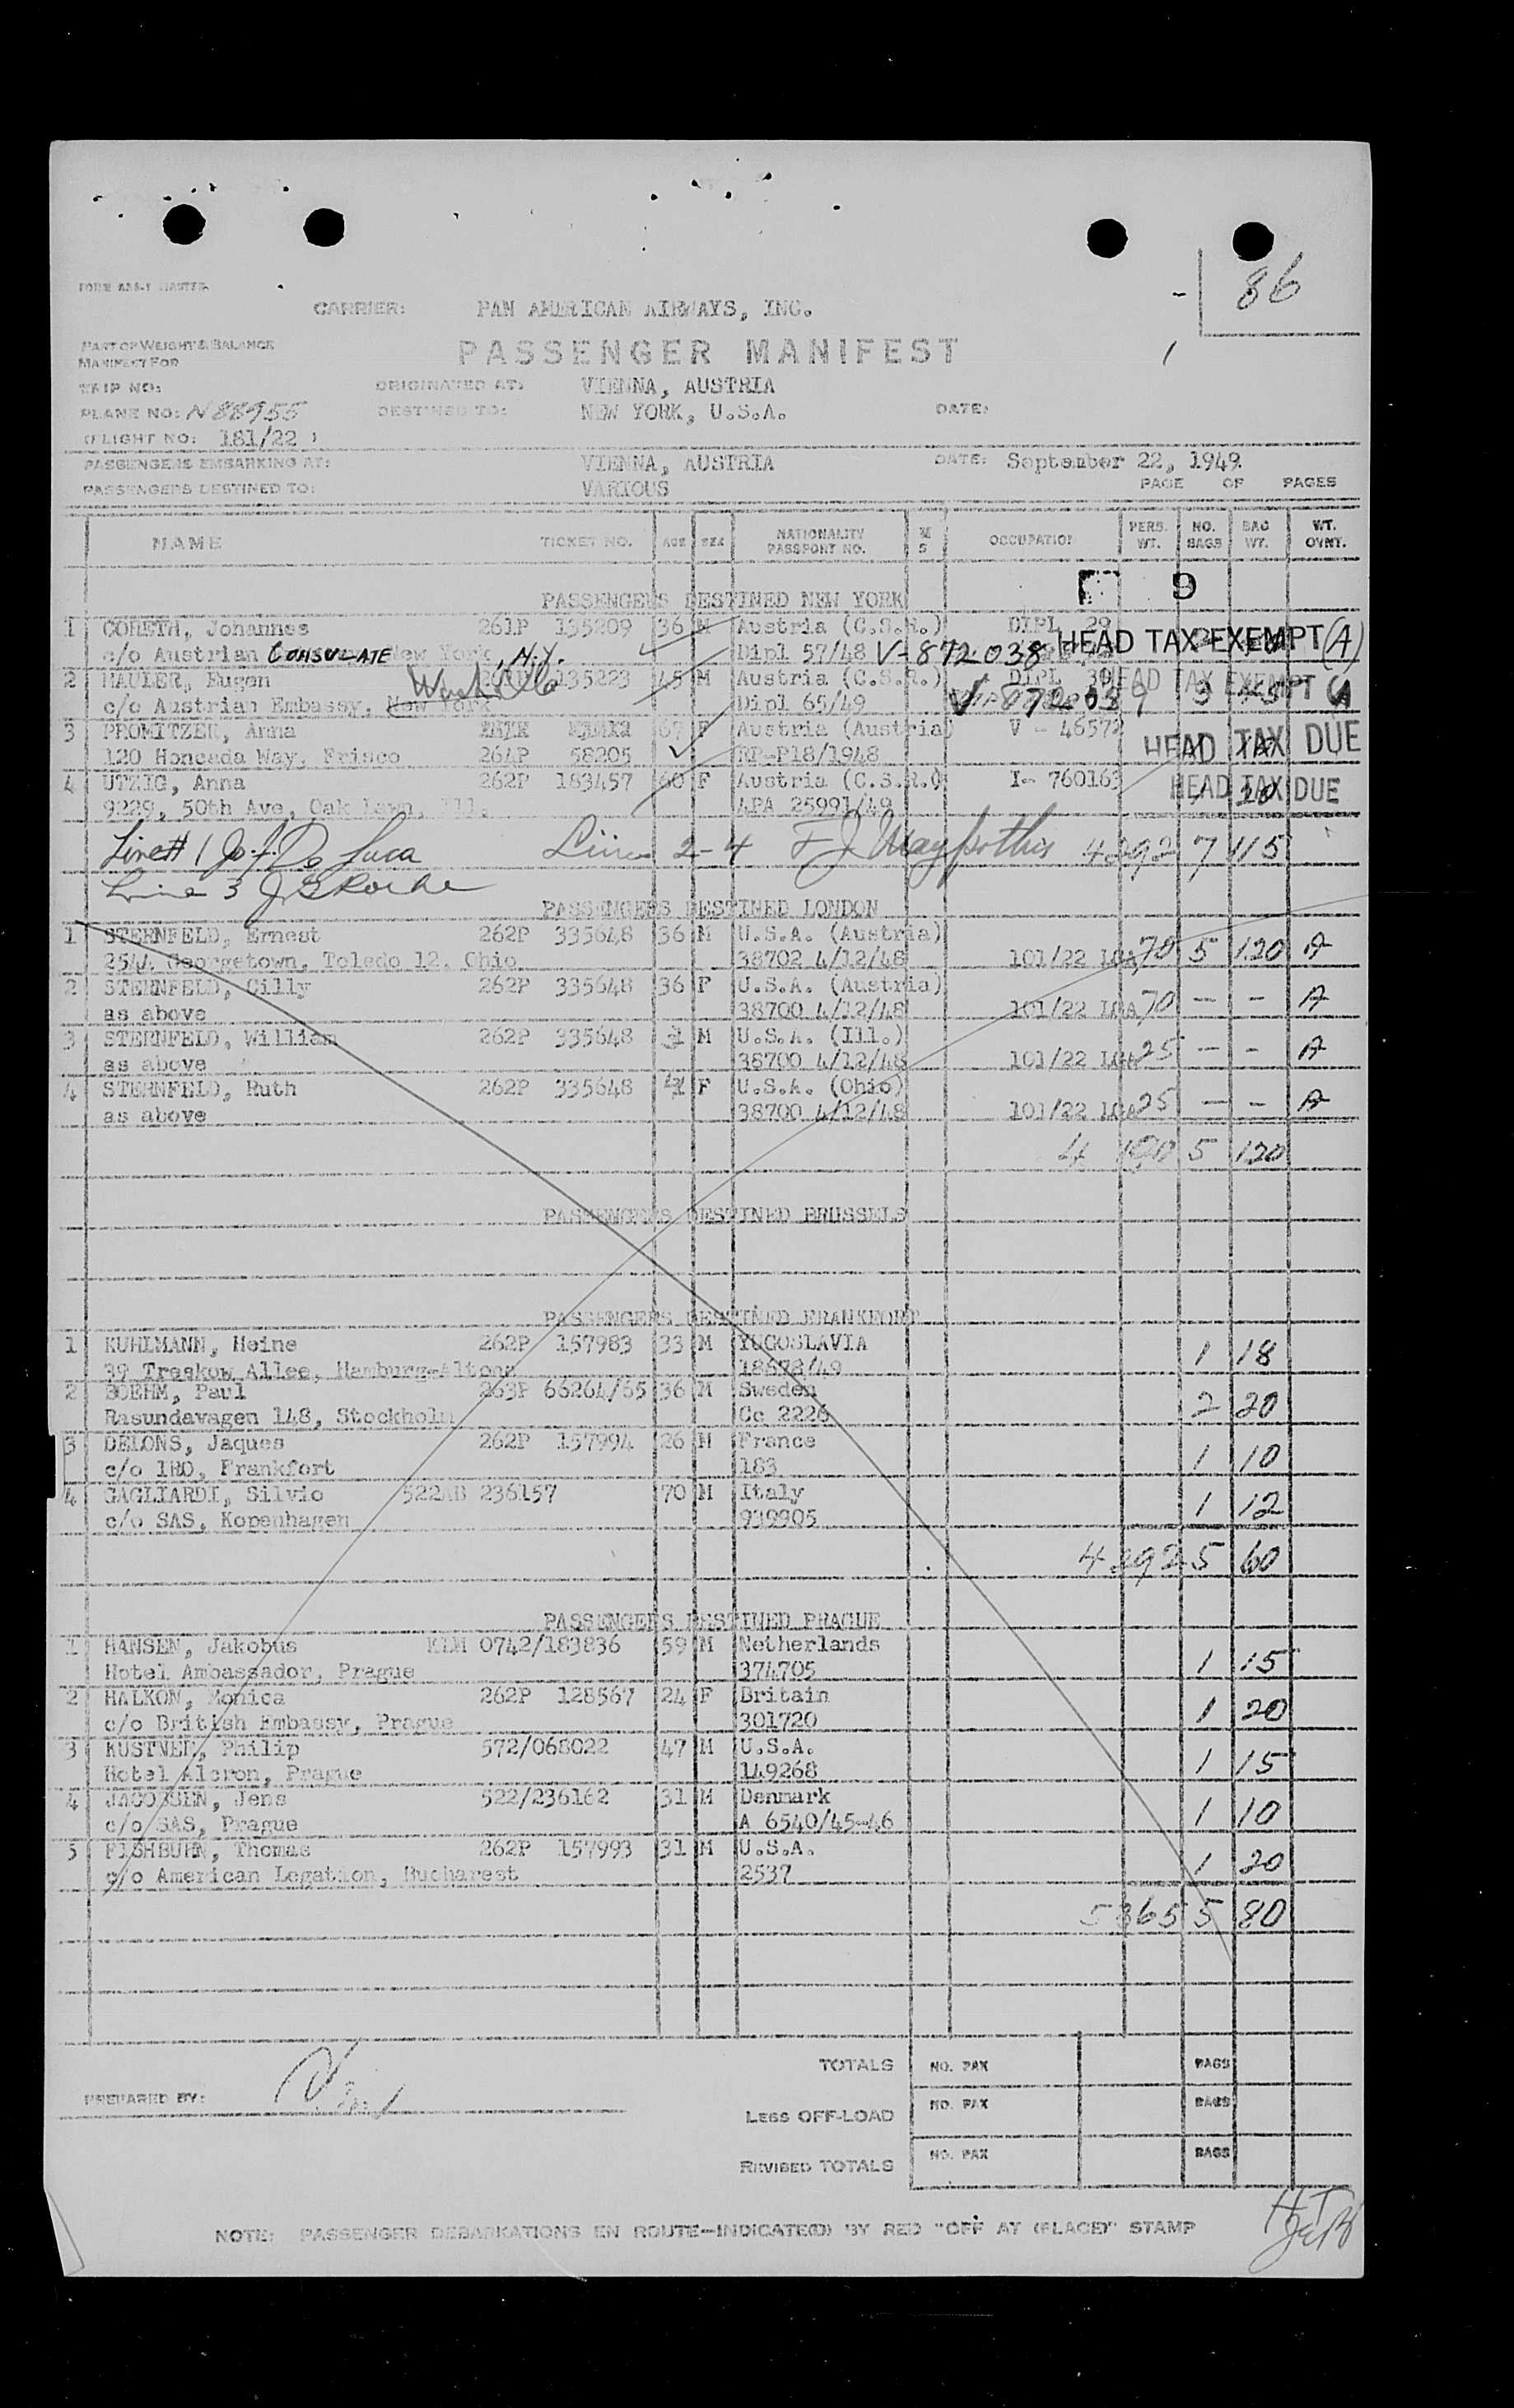 86
FORM
CARRIER: PAN AMERICAN AIRWAYS, INC.
PART OF WEIGHT & BALANCE
MANIFEST FOR
PASSENGER MANIFEST
TRIP NO: ORIGINATED AT: VIENNA, AUSTRIA
PLANE NO: N88955 DESTINED TO: NEW YORK, U.S.A. DATE:
(FLIGHT NO: 181/22 )
PASSENGERS EMBARKING AT: VIENNA, AUSTRIA DATE: September 22, 1949
PASSENGERS DESTINED TO: VARIOUS PAGE OF PAGES
NAME TICKET NO. AGE SEX NATIONALITY PASSPORT NO. M S OCCUPATION PERS. WT. NO. BAGS BAG WT. WT. OVNT.
9
PASSENGERS DESTINED NEW YORK
1 CORETH, Johannes 261P 135209 36 M Austria (C.S.R.) DIPL 29
c/o Austrian CONSULATE New York, N.Y. Dipl 57/48 V-872038 HEAD TAX EXEMPT (A)
2 HAULER, Eugen 135223 45 M Austria (C.S.R.) DIPL 30 HEAD TAX EXEMPT
c/o Austrian Embassy, New York Dipl 65/49 V 872039 3 A
3 PROMITZER, Anna 67 F Austria (Austria) V - 46572
120 Honcada Way, Frisco 264P 58205 RP-P18/1948 HEAD TAX DUE
4 UTZIG, Anna 262P 183457 60 F Austria (C.S.R.) I- 760163 HEAD TAX DUE
9229, 50th Ave, Oak Lawn, Ill. APA 25991/49
Line# 1 Jo. J. De Luca Line 2-4 4 292 7 115
Line 3
PASSENGERS DESTINED LONDON
1 STERNFELD, Ernest 262P 335648 36 M U.S.A. (Austria)
254 Georgetown, Toledo 12, Ohio 38702 4/12/48 101/22 LGA 70 5 120 A
2 STERNFELD, Cilly 262P 335648 36 F U.S.A. (Austria)
as above 38700 4/12/48 101/22 LGA 70 - - A
3 STERNFELD, William 262P 335648 M U.S.A. (Ill.)
as above 38700 4/12/48 101/22 LGA 25 - - A
4 STERNFELD, Ruth 262P 335648 F U.S.A. (Ohio)
as above 38700 4/12/48 101/22 LGA 25 - - A
4 190 5 120
PASSENGERS DESTINED BRUSSELS
PASSENGERS DESTINED FRANKFORT
1 KUHLMANN, Heine 262P 157983 33 M YUGOSLAVIA
39 Treskow Allee, Hamburg-Altona 18678/49 1 18
2 BOEHM, Paul 263P 66264/65 36 M Sweden
Rasundavagen 148, Stockholm Cc 2226 2 20
3 DELONS, Jaques 262P 157994 26 M France
c/o IRO, Frankfort 183 1 10
4 GAGLIARDI, Silvio 522AB 236157 70 M Italy
c/o SAS, Kopenhagen 939905 1 12
4 292 5 60
PASSENGERS DESTINED PRAGUE
1 HANSEN, Jakobus KLM 0742/183836 59 M Netherlands
Hotel Ambassador, Prague 374705 1 15
2 HALKON, Monica 262P 128567 24 F Britain
c/o British Embassy, Prague 301720 1 20
3 KUSTNER, Philip 572/068022 47 M U.S.A.
Hotel Alcron, Prague 149268 1 15
4 JACOBSEN, Jens 522/236162 31 M Denmark
c/o SAS, Prague A 6540/45-46 1 10
5 FISHBURN, Thomas 262P 157993 31 M U.S.A.
c/o American Legation, Bucharest 2537 1 20
5 365 5 80
TOTALS NO. PAX BAGS
PREPARED BY:
LESS OFF-LOAD NO. PAX BAGS
REVISED TOTALS NO. PAX BAGS
NOTE: PASSENGER DEBARKATIONS EN ROUTE—INDICATE(D) BY RED "OFF AT (PLACE)" STAMP